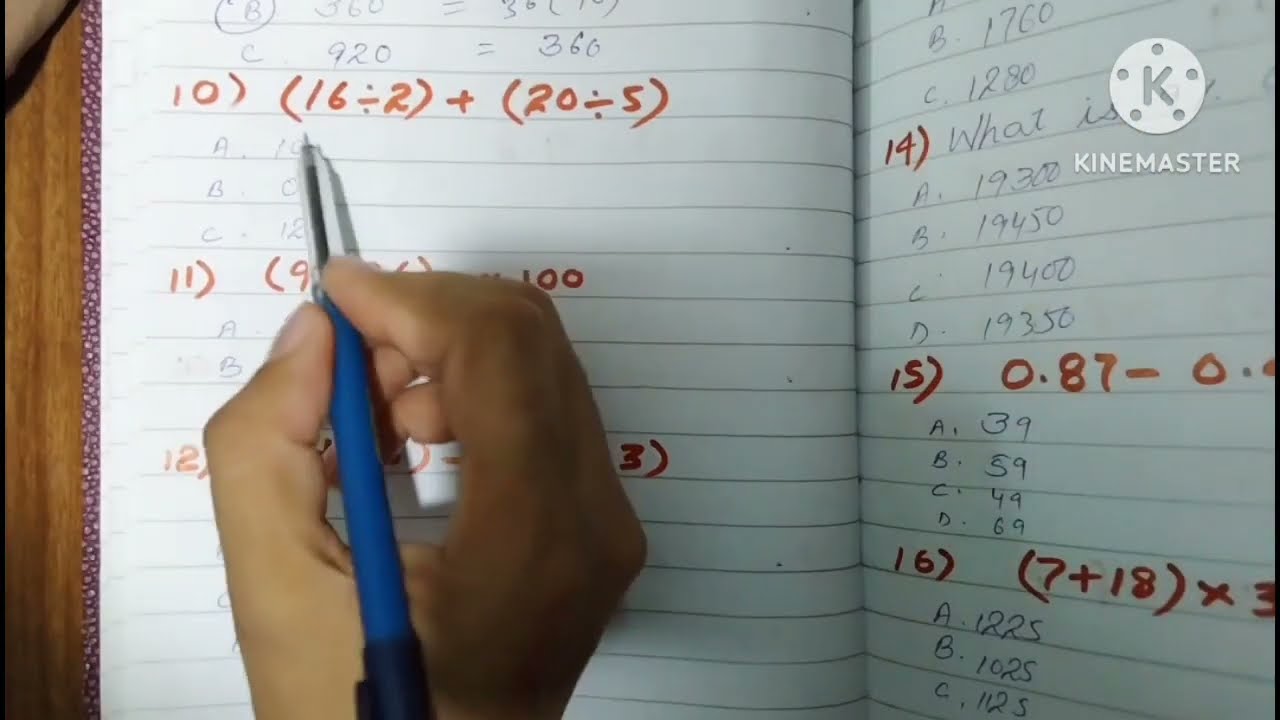 B) 360 = 36
C. 920 = 360
10) (16÷2) + (20÷5)
A.
B.
C. 12
11) (9 100
A.
B
12) ) - 3)
B. 1760
C. 1280
14) What is
A. 19300
B. 19450
C. 19400
D. 19350
15) 0.87 - 0.
A. 39
B. 59
C. 49
D. 69
16) (7+18) × 3
A. 1225
B. 1025
C. 1125
K
KINEMASTER